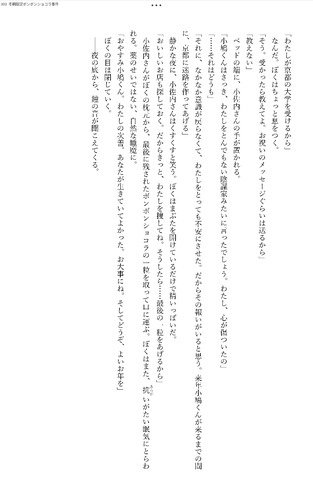 冬期限定ボンボンショコラ事件
「わたしが京都の大学を受けるから」
なんだ。ぼくはちょっと息をつく。
「そう。受かったら教えてよ。お祝いのメッセージぐらいは送るから」
「教えない」
ベッドの端に、小佐内さんの手が置かれる。
「小鳩くんはさっき、わたしをとんでもない陰謀家みたいに言ったでしょう。わたし、心が傷ついたの」
「……それはどうも」
「それに、なかなか意識が戻らなくて、わたしをとっても不安にさせた。だからその報いがいると思う。来年小鳩くんが来るまでの間
に、京都に迷路を作ってあげる」
静かな夜に、小佐内さんはくすくすと笑う。ぼくはまぶたを開けているだけで精いっぱいだ。
「おいしいお店も探しておく。だからきっと、わたしを捜してね。そうしたら……最後の一粒をあげるから」
小佐内さんがぼくの枕元から、最後に残されたボンボンショコラの一粒を取って口に運ぶ。ぼくはまた、抗いがたい眠気にとらわ
れる。薬のせいではない、自然な睡魔に。
ぼくの目は閉じていく。
「おやすみ小鳩くん、わたしの次善。あなたが生きていてよかった。お大事にね。そしてどうぞ、よいお年を」
――夜の底から、鐘の音が聞こえてくる。